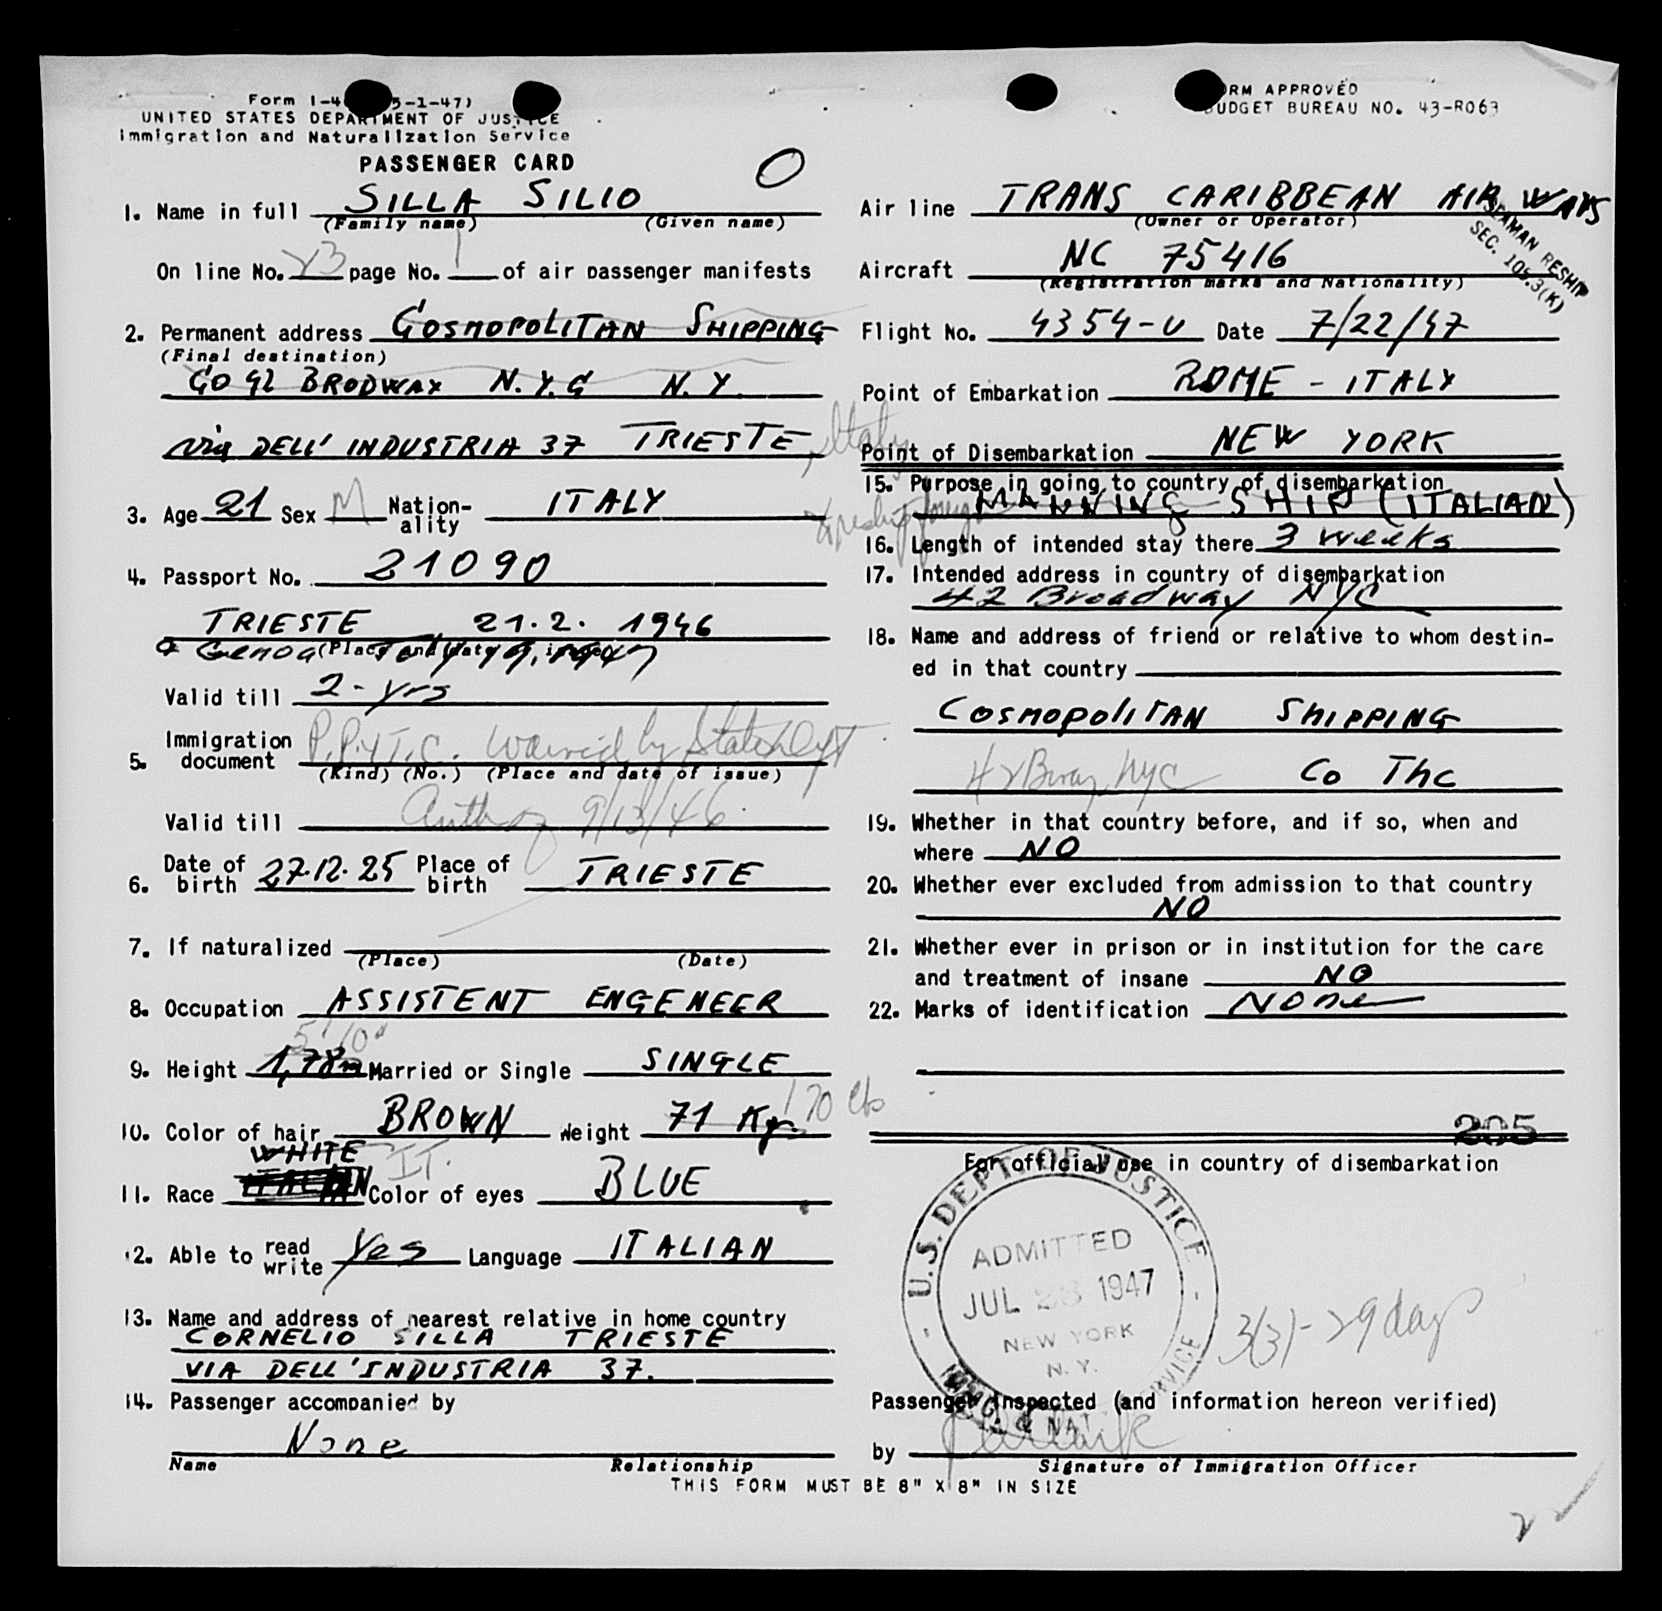 Form I-4 5-1-47)
UNITED STATES DEPARTMENT OF JUSTICE
Immigration and Naturalization Service
PASSENGER CARD
O
FORM APPROVED
BUDGET BUREAU NO. 43-R063
1. Name in full SILLA SILIO
(Family name) (Given name)
On line No. 23 page No. 1 of air passenger manifests
2. Permanent address COSMOPOLITAN SHIPPING
(Final destination)
CO 42 BRODWAY N.Y.C N.Y.
Via DELL' INDUSTRIA 37 TRIESTE, Italy
3. Age 21 Sex M Nation-ality ITALY
4. Passport No. 21090
TRIESTE 21.2.1946
(Place and date of issue)
Valid till 2-yrs
5. Immigration document P.P.&T.C. waived by State Dept
(Kind) (No.) (Place and date of issue)
Valid till 9/13/46
6. Date of birth 27.12.25 Place of birth TRIESTE
7. If naturalized
(Place) (Date)
8. Occupation ASSISTENT ENGENEER
5' 10"
9. Height 1,78m Married or Single SINGLE
10. Color of hair BROWN Weight 71 Kg. 170 lbs
WHITE IT.
11. Race ITALIAN Color of eyes BLUE
12. Able to read write Yes Language ITALIAN
13. Name and address of nearest relative in home country
CORNELIO SILLA TRIESTE
VIA DELL'INDUSTRIA 37.
14. Passenger accompanied by
None
Name Relationship
Air line TRANS CARIBBEAN AIR WAYS
(Owner or Operator)
SEAMAN RESHIP
SEC. 105.3(K)
Aircraft NC 75416
(Registration marks and Nationality)
Flight No. 4354-U Date 7/22/47
Point of Embarkation ROME - ITALY
Point of Disembarkation NEW YORK
15. Purpose in going to country of disembarkation
MANNING SHIP (ITALIAN)
16. Length of intended stay there 3 weeks
17. Intended address in country of disembarkation
42 Broadway NYC
18. Name and address of friend or relative to whom destin-
ed in that country
COSMOPOLITAN SHIPPING
42 Bway, NYC Co Inc
19. Whether in that country before, and if so, when and
where NO
20. Whether ever excluded from admission to that country
NO
21. Whether ever in prison or in institution for the care
and treatment of insane NO
22. Marks of identification None
205
For official use in country of disembarkation
U.S. DEPT. OF JUSTICE
ADMITTED
JUL 1947
NEW YORK
N.Y.
IMMIG. & NAT. SERVICE
3(3)-29 days
Passenger Inspected (and information hereon verified)
by
Signature of Immigration Officer
THIS FORM MUST BE 8" X 8" IN SIZE
2